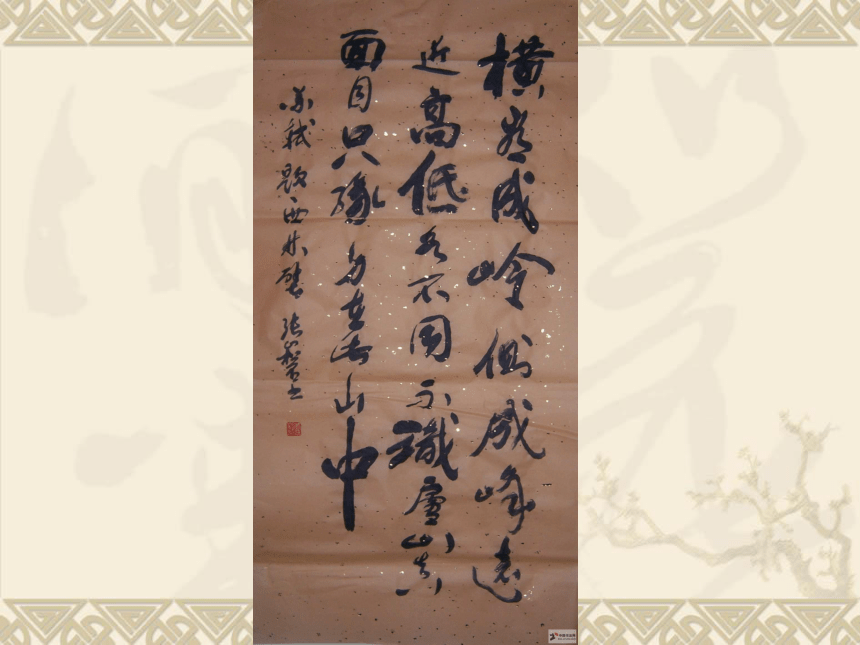 横看成岭侧成峰遠
近高低各不同不識廬山真
面目只缘身在此山中
苏轼题西林壁 张